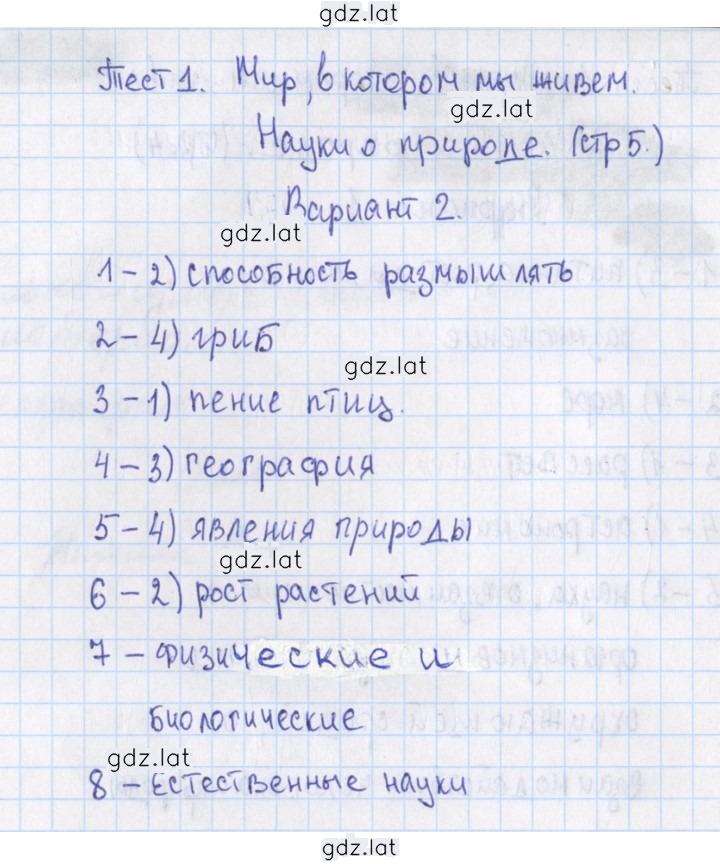 gdz.lat
Тест 1. Мир, в котором мы живем.
gdz.lat
Науки о природе. (стр 5.)
Вариант 2.
gdz.lat
1 - 2) способность размышлять
2 - 4) гриб
gdz.lat
3 - 1) пение птиц.
4 - 3) география
5 - 4) явления природы
gdz.lat
6 - 2) рост растений
7 - физические и
биологические
gdz.lat
8 - Естественные науки
gdz.lat